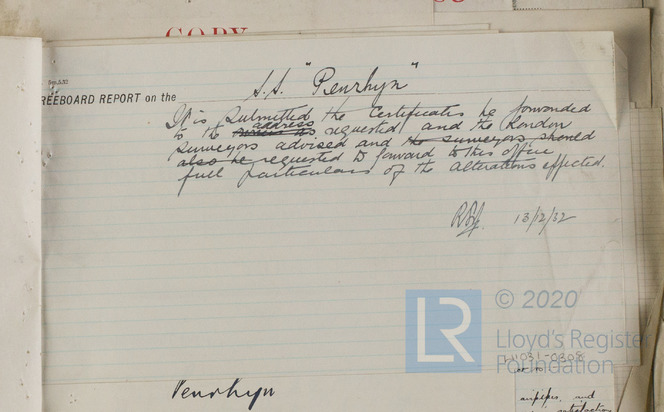 COPY
REEBOARD REPORT on the S.S. "Penrhyn"
It is submitted the Certificates be forwarded
to the address requested and the London
surveyors advised and the surveyors should
also be requested to forward to this office
full particulars of the alterations effected.
13/12/32
LR © 2020
Lloyd's Register
Foundation
Penrhyn
airpipes, and